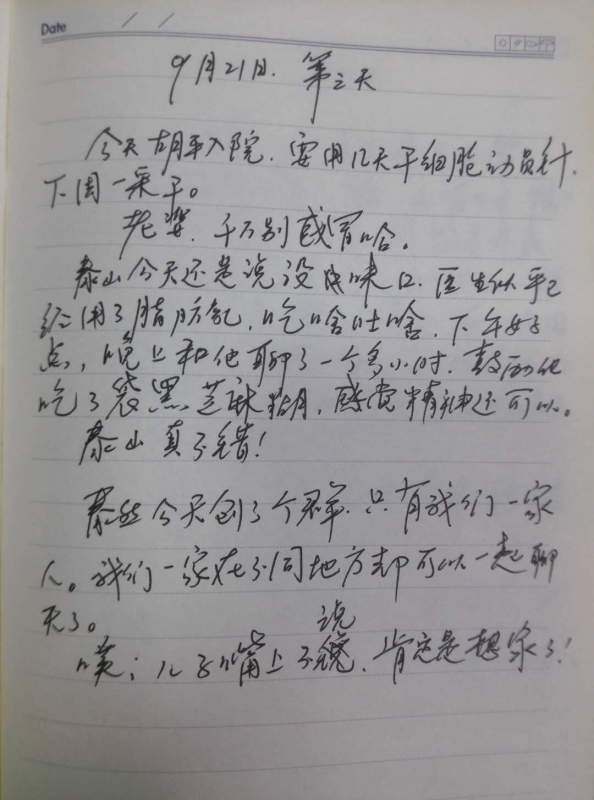 Date / /
9月21日. 第三天
今天胡平入院, 要用几天干细胞动员针,
下周一采干。
老婆, 千万别感冒哈。
泰山今天还是说没有味口. 医生似乎已
经用了脂肪乳, 吃啥吐啥, 下午好
点, 晚上和他聊了一个多小时, 鼓励他
吃了袋黑芝麻糊, 感觉精神还可以。
泰山真不错!
泰然今天创了个群, 只有我们一家
人。我们一家在不同地方却可以一起聊
天了。
说
噗; 儿子嘴上不, 肯定是想家了!